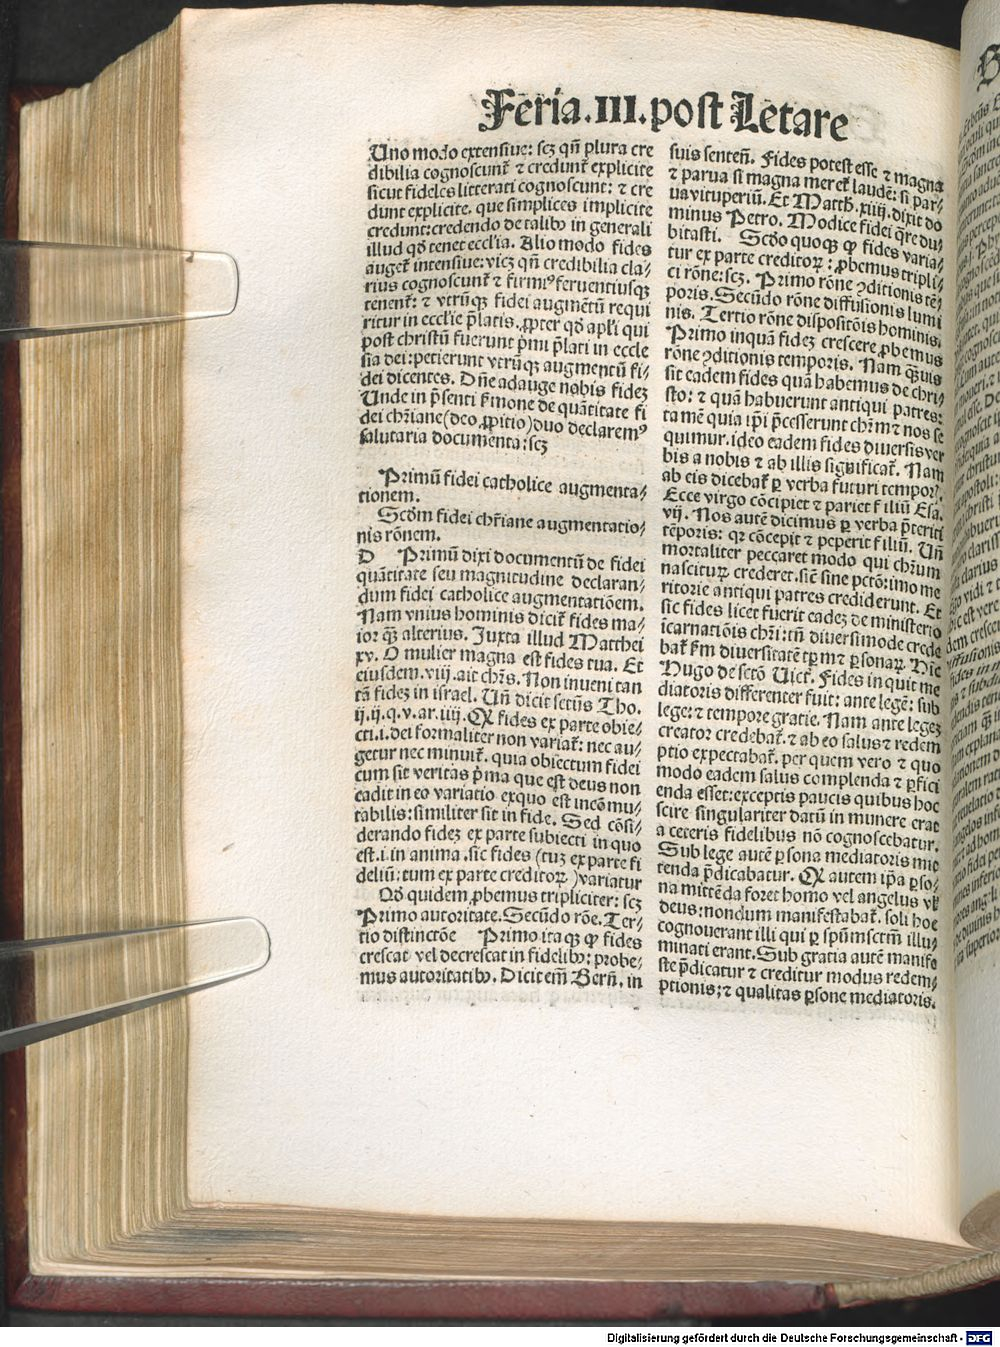 Feria.III.post Letare
Uno modo extensiue: scꝫ qñ plura cre
dibilia cognoscunt̃ ⁊ credunt̃ explicite
sicut fideles litterati cognoscunt: ⁊ cre
dunt explicite. que simplices implicite
credunt: credendo de talibꝰ in generali
illud qđ tenet eccl'ia. Alio modo fides
auget̃ intensiue: vicꝫ qñ credibilia cla⸗
rius cognoscunt̃ ⁊ firmiꝰ feruentiusqꝫ
tenent̃: ⁊ vtrũqꝫ fidei augmẽtũ requi
ritur in eccl'ie p̃latis. ꝓpter qđ apl'i qui
post christũ fuerunt p̃mi p̃lati in eccle
sia dei: petierunt vtrũqꝫ augmentũ fi⸗
dei dicentes. Dñe adauge nobis fideꝫ
Unde in p̃senti ẜmone de quãtitate fi
dei chr̃iane (deo ꝓpitio) duo declaremꝰ
salutaria documenta: scꝫ
Primũ fidei catholice augmenta⸗
tionem.
Scđm fidei chr̃iane augmentatio⸗
nis rõnem.
D Primũ dixi documentũ de fidei
quãtitate seu magnitudine declaran⸗
dum fidei catholice augmentatiõem.
Nam vnius hominis dicit̃ fides ma⸗
ior qꝫ̃ alterius. Juxta illud Matthei
xv. O mulier magna est fides tua. Et
eiusdem. viij. ait chr̃s. Non inueni tan
tã fideꝫ in israel. Uñ dicit sctũs Tho.
ij. ij. q. v. ar. iiij. Qꝫ fides ex parte obie⸗
cti. i. dei formaliter non variat̃: nec au⸗
getur nec minuit̃. quia obiectum fidei
cum sit veritas p̃ma que est deus non
cadit in eo variatio exquo est incõmu⸗
tabilis: similiter sit in fide. Sed cõsi⸗
derando fideꝫ ex parte subiecti in quo
est. i. in anima. sic fides (tuꝫ ex parte fi
deliũ: tum ex parte creditoꝝ) variatur
Qđ quidem ꝓbemus tripliciter: scꝫ
Primo autoritate. Secũdo rõe. Ter⸗
tio distinctõe Primo itaqꝫ ꝙ fides
crescat vel decrescat in fidelibꝰ: probe⸗
mus autoritatibꝰ. Dicit em̃ Berñ. in
suis senteñ. Fides potest esse ⁊ magna
⁊ parua si magna meret̃ laudẽ: si par⸗
ua vituperiũ. Et Matth. xiiij. dixit do
minus Petro. Modice fidei q̃re du⸗
bitasti. Scđo quoqꝫ ꝙ fides varia⸗
tur ex parte creditoꝝ: ꝓbemus tripli⸗
ci rõne: scꝫ. Primo rõne ꝯditionis tẽ⸗
poris. Secũdo rõne diffusionis lumi
nis. Tertio rõne dispositõis hominis.
Primo inquã fideꝫ crescere ꝓbemus
rõne ꝯditionis temporis. Nam qꝫ̃uis
sit eadem fides quã habemus de chri⸗
sto: ⁊ quã habuerunt antiqui patres:
tamẽ quia ip̃i p̃cesserunt chr̃m ⁊ nos se
quimur. ideo eadem fides diuersis ver
bis a nobis ⁊ ab illis significat̃. Nam
ab eis dicebat̃ ꝑ verba futuri temporꝭ.
Ecce virgo cõcipiet ⁊ pariet filiũ Esa.
vij. Nos autẽ dicimus ꝑ verba p̃teriti
tẽporis: qꝛ cõcepit ⁊ peperit filiũ. Uñ
mortaliter peccaret modo qui chr̃um
nasciturꝫ crederet. sic̃ sine pctõ: imo me
ritorie antiqui patres crediderunt. Et
sic fides licet fuerit eadeꝫ de ministerio
ĩcarnatiõis chr̃i: tñ diuersimode crede
bat̃ ẜm diuersitatẽ tꝑm ⁊ ꝑsonaꝝ. Hic
Hugo de sctõ Uict̃. Fides inquit me
diatoris differenter fuit: ante legẽ: sub
lege: ⁊ tempore gratie. Nam ante legeꝫ
creator credebat̃. ⁊ ab eo salus ⁊ redem
ptio expectabat̃. per quem vero ⁊ quo
modo eadem salus complenda ⁊ ꝑfici
enda esset: exceptis paucis quibus hoc
scire singulariter datũ in munere erat
a ceteris fidelibus nõ cognoscebatur.
Sub lege autẽ ꝑsona mediatoris mit
tenda p̃dicabatur. Q̃ autem ip̃a ꝑso⸗
na mittẽda foret homo vel angelus vl̃
deus: nondum manifestabat̃. soli hoc
cognouerant illi qui ꝑ sp̃m sctm̃ illu⸗
minati erant. Sub gratia autẽ manife
ste p̃dicatur ⁊ creditur modus redem⸗
ptionis: ⁊ qualitas ꝑsone mediatoris.
Digitalisierung gefördert durch die Deutsche Forschungsgemeinschaft - DFG